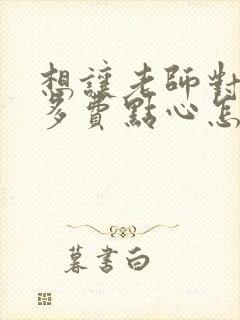 想讓老師對
多費點心怎
暮書白